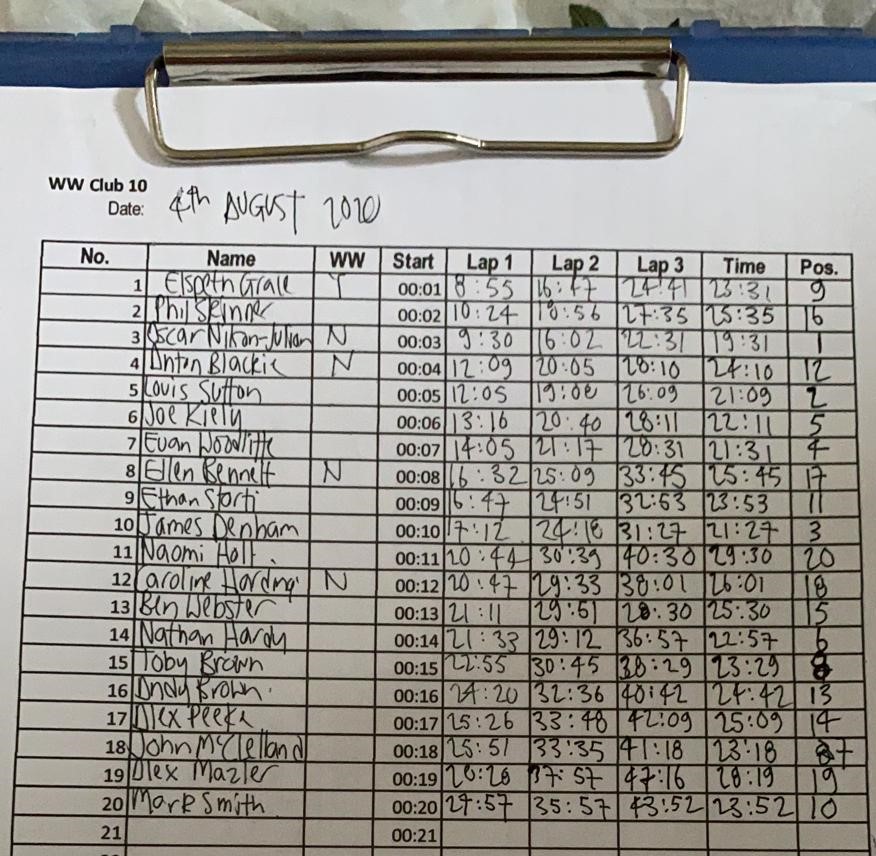 WW Club 10
Date: 4th AUGUST 2020
No. Name WW Start Lap 1 Lap 2 Lap 3 Time Pos.
1 Elspeth Grace Y 00:01 8:55 16:47 24:41 23:31 9
2 Phil Skinner 00:02 10:24 18:56 27:35 25:35 16
3 Oscar Nixon-Julian N 00:03 9:30 16:02 22:31 19:31 1
4 Anton Blackie N 00:04 12:09 20:05 28:10 24:10 12
5 Louis Sutton 00:05 12:05 19:08 26:09 21:09 2
6 Joe Kiely 00:06 13:16 20:40 28:11 22:11 5
7 Euan Woodliffe 00:07 14:05 21:17 28:31 21:31 4
8 Ellen Bennett N 00:08 16:32 25:09 33:45 25:45 17
9 Ethan Storti 00:09 16:47 24:51 32:53 23:53 11
10 James Denham 00:10 17:12 24:18 31:27 21:27 3
11 Naomi Holt. 00:11 20:44 30:39 40:30 29:30 20
12 Caroline Harding N 00:12 20:47 29:33 38:01 26:01 18
13 Ben Webster 00:13 21:11 29:51 28:30 25:30 15
14 Nathan Hardy 00:14 21:33 29:12 36:57 22:57 6
15 Toby Brown 00:15 22:55 30:45 38:29 23:29 8
16 Andy Brown. 00:16 24:20 32:36 40:42 24:42 13
17 Alex Peeke 00:17 25:26 33:48 42:09 25:09 14
18 John McClelland 00:18 25:51 33:35 41:18 23:18 7
19 Alex Mazler 00:19 28:28 37:57 47:16 28:19 19
20 Mark Smith 00:20 27:57 35:57 43:52 23:52 10
21 00:21